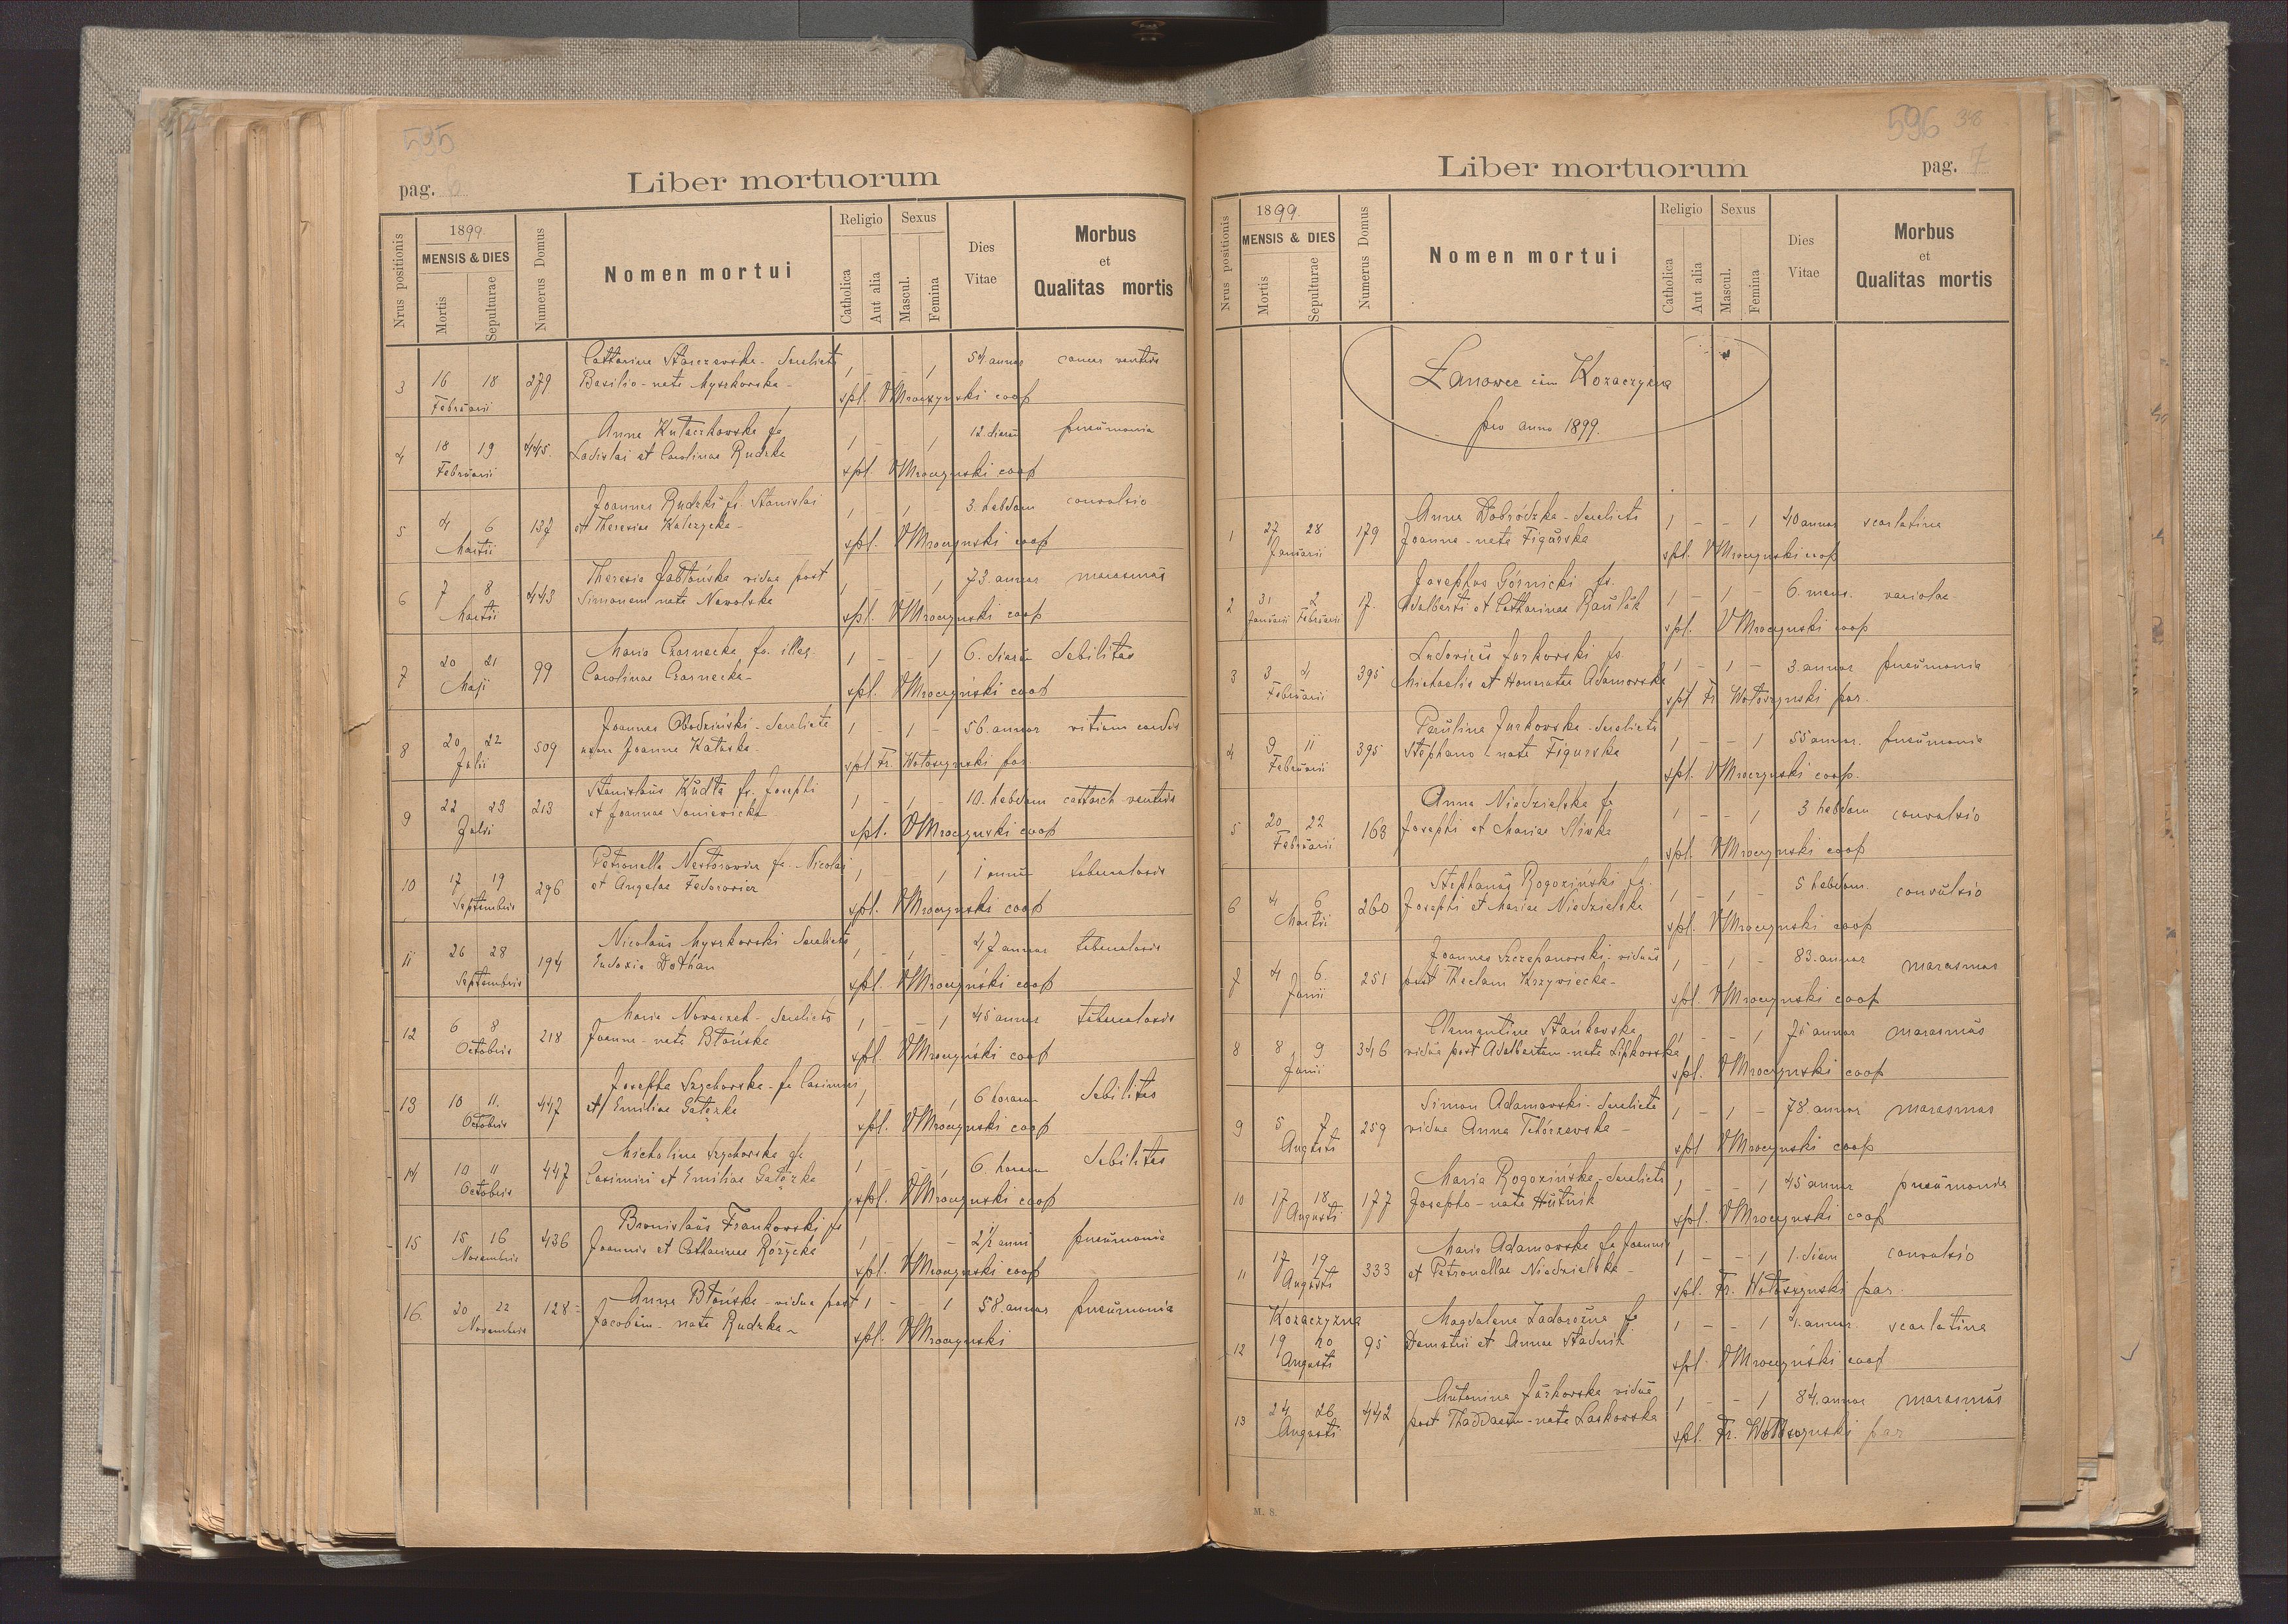 595
pag.
Liber mortuorum
Nrus positionis
1899
MENSIS & DIES
Mortis
Sepulturae
Numerus Domus
Nomen mortui
Religio
Catholica
Aut alia
Sexus
Mascul.
Femina
Dies
Vitae
Morbus
et
Qualitas mortis
3 16 18 Februarii 279 Catharina Starczewska - derelicto 1 - - 1 54. annor cancer ventris
Basilio - nata Myszkowska -
spl. VMroczynski coop
4 18 19 Februarii 445. Anna Kutaczkowska fa 1 - - 1 12. dierum pneumonia
Ladislai et Carolinae Rudzka
spl. VMroczynski coop
5 4 6 Martii 137 Joannes Rudzki fs. Stanislai 1 - 1 - 3. hebdom convulsio
et Theresiae Kalczycka -
spl. VMroczynski coop
6 7 8 Martii 443 Theresia Jabłońska vidua post 1 - - 1 73. annor marasmus
Simonem nata Nawolska
spl. VMroczynski coop
7 20 21 Maji 99 Maria Czarnecka fa. illeg. 1 - - 1 6. dierum debilitas
Carolinae Czarnecka -
spl. VMroczyński coop
8 20 22 Julii 509 Joannes Obodziński - derelicta 1 - 1 - 56. annor vitium cordis
uxore Joanna Kataska -
spl Fr. Wołoszynski par
9 22 23 Julii 213 Stanislaus Kudła fs. Josephi 1 - 1 - 10. hebdom cattarh ventris
et Joannae Soniewicka
spl. VMroczynski coop
10 17 19 Septembris 296 Petronella Nestorowicz fa. Nicolai 1 - - 1 1 annu tuberculosis
et Angelae Fedorowicz
spl. VMroczynski coop
11 26 28 Septembris 194 Nicolaus Myszkowski derelicta 1 - 1 - 47 annor tuberculosis
Eudoxia Dothan
spl. VMroczyński coop
12 6 8 Octobris 218 Maria Nowaczek - derelicto 1 - - 1 45 annor tuberculosis
Joanne - nata Błońska
spl. VMroczyński coop
13 10 11. Octobris 447 Josepha Szychowska - fa Casimiri 1 - - 1 6 horarum debilitas
et Emiliae Gałęzka
spl. VMroczynski coop
14 10 11 Octobris 447 Michalina Szychowska fa 1 - - 1 6. horarum debilitas
Casimiri et Emiliae Gałęzka
spl. VMroczynski coop
15 15 16 Novembris 436 Bronislaus Frankowski fs 1 - 1 - 2½ anni pneumonia
Joannis et Catharinae Różycka
spl. VMroczynski coop
16. 20 22 Novembris 128 Anna Błońska - vidua post 1 - - 1 58. annor pneumonia
Jacobum - nata Rudzka -
spl. VMroczynski
596 38
Liber mortuorum
pag. 7
Nrus positionis
1899.
MENSIS & DIES
Mortis
Sepulturae
Numerus Domus
Nomen mortui
Religio
Catholica
Aut alia
Sexus
Mascul.
Femina
Dies
Vitae
Morbus
et
Qualitas mortis
Łanowce cum Kozaczyzna
pro anno 1899.
1 27 28 Januarii 179 Anna Dobródzka - derelicto 1 - - 1 40 annor scarlatina
Joanne - nata Figurska
spl. VMroczynski coop
2 31 Januarii 2 Februarii 17. Josephus Górnicki fs. 1 - 1 - 6. mens. variolae
Adalberti et Catharinae Pauluk
spl. VMroczynski coop
3 3 4 Februarii 395 Ludovicus Jurkowski fs 1 - 1 - 3. annor pneumonia
Michaelis et Honoratae Adamowska
spl Fr Wołoszynski par.
4 9 11 Februarii 395 Paulina Jurkowska - derelicto 1 - - 1 55 annor. pneumonia
Stephano nata Figurska
spl. VMroczynski coop.
5 20 22 Februarii 168 Anna Niedzielska fa 1 - - 1 3 hebdom convulsio
Josephi et Mariae Sliwka
spl. VMroczynski coop
6 4 6 Martii 260 Stephanus Rogoziński fs. 1 - 1 - 5 hebdom. convulsio
Josephi et Mariae Niedzielska
spl. VMroczynski coop
7 4 6. Junii 251 Joannes Szczepanowski - viduus 1 - 1 - 83. annor marasmus
post Theclam Krzywiecka -
spl. VMroczynski coop
8 8 9 Junii 346 Clementina Stańkowska 1 - - 1 75 annor marasmus
vidua post Adalbertum - nata Lipkowska
spl. VMroczynski coop
9 5 7 Augusti 259 Simon Adamowski - derelicta 1 - 1 - 78. annor marasmus
vidua Anna Tchórzewska -
spl VMroczynski coop
10 17 18 Augusti 177 Maria Rogozińska - derelicto 1 - - 1 45 annor pneumonia
Josepho - nata Hutnik
spl. VMroczynski coop
11 17 19 Augusti 333 Maria Adamowska fa Joannis 1 - - 1 1. diem convulsio
et Petronellae Niedzielska -
spl. Fr. Wołoszynski par.
Kozaczyzna
12 19 20 Augusti 95 Magdalena Zadorożna fa 1 - - 1 4. annor. scarlatina
Demetrii et Annae Stadnik
spl. VMroczyński coop
13 24 26 Augusti 442 Antonina Jurkowska vidua 1 - - 1 84. annor marasmus
post Thaddaeum - nata Laskowska
spl. Fr. Wołoszynski par
M. 8.